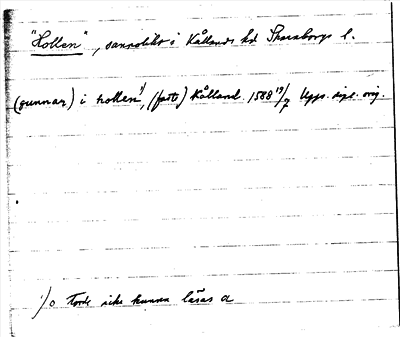 "Hollen", sannolikt i Kållands hd Skaraborgs l.
(gunnar) i hollen¹⁾, (fatb) Kålland 1588 19/7 Upps. dipl. orig.
¹⁾ o torde icke kunna läsas a